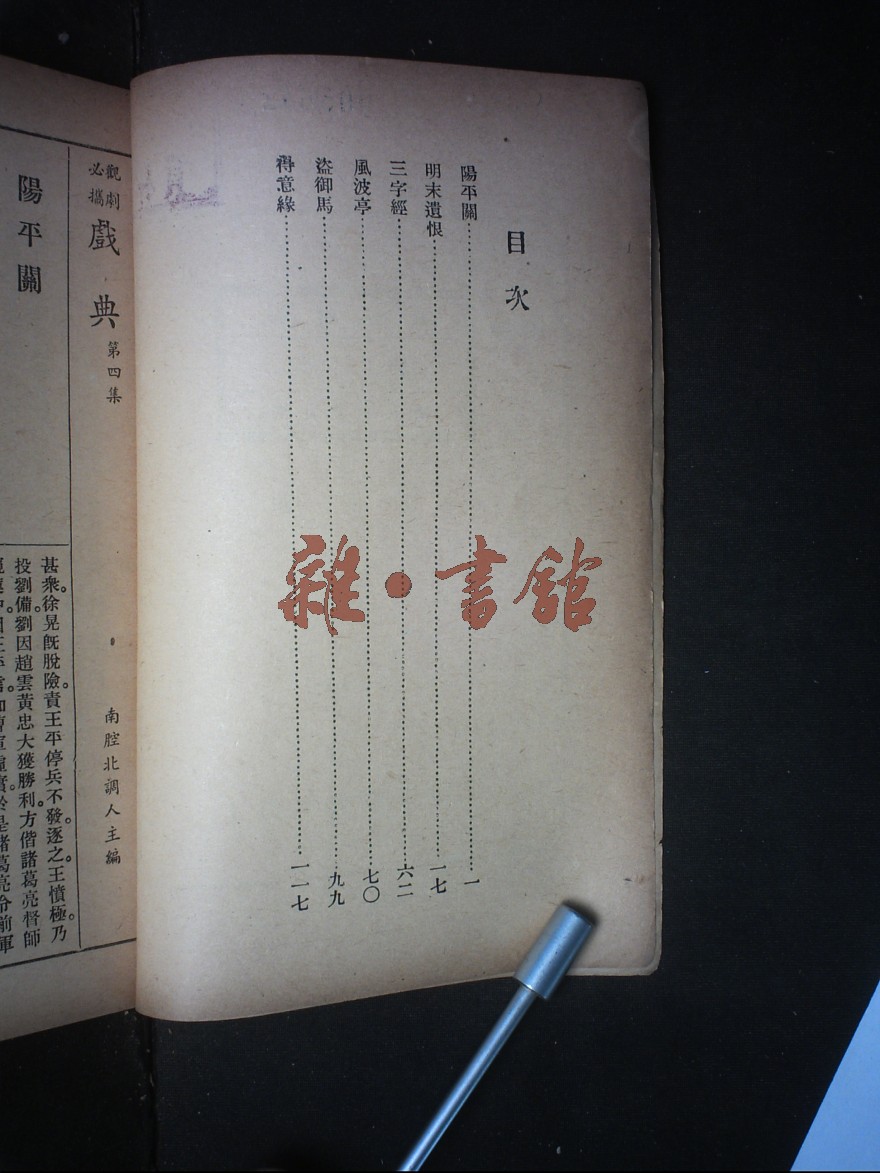 目次
陽平關 一
明末遺恨 一七
三字經 六二
風波亭 七〇
盜御馬 九九
得意緣 一一七
雜·書館
觀劇必攜 戲典 第四集 南腔北調人主編
陽平關
甚衆。徐晃旣脫險。責王平停兵不發。逐之。王憤極。乃
投劉備。劉因趙雲黃忠大獲勝利。方偕諸葛亮督師